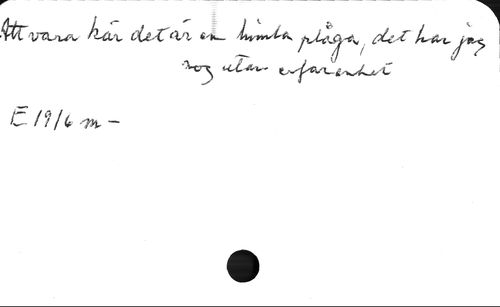 Att vara kär det är en himla plåga, det har jag
nog utav erfarenhet
E 19/6 m -